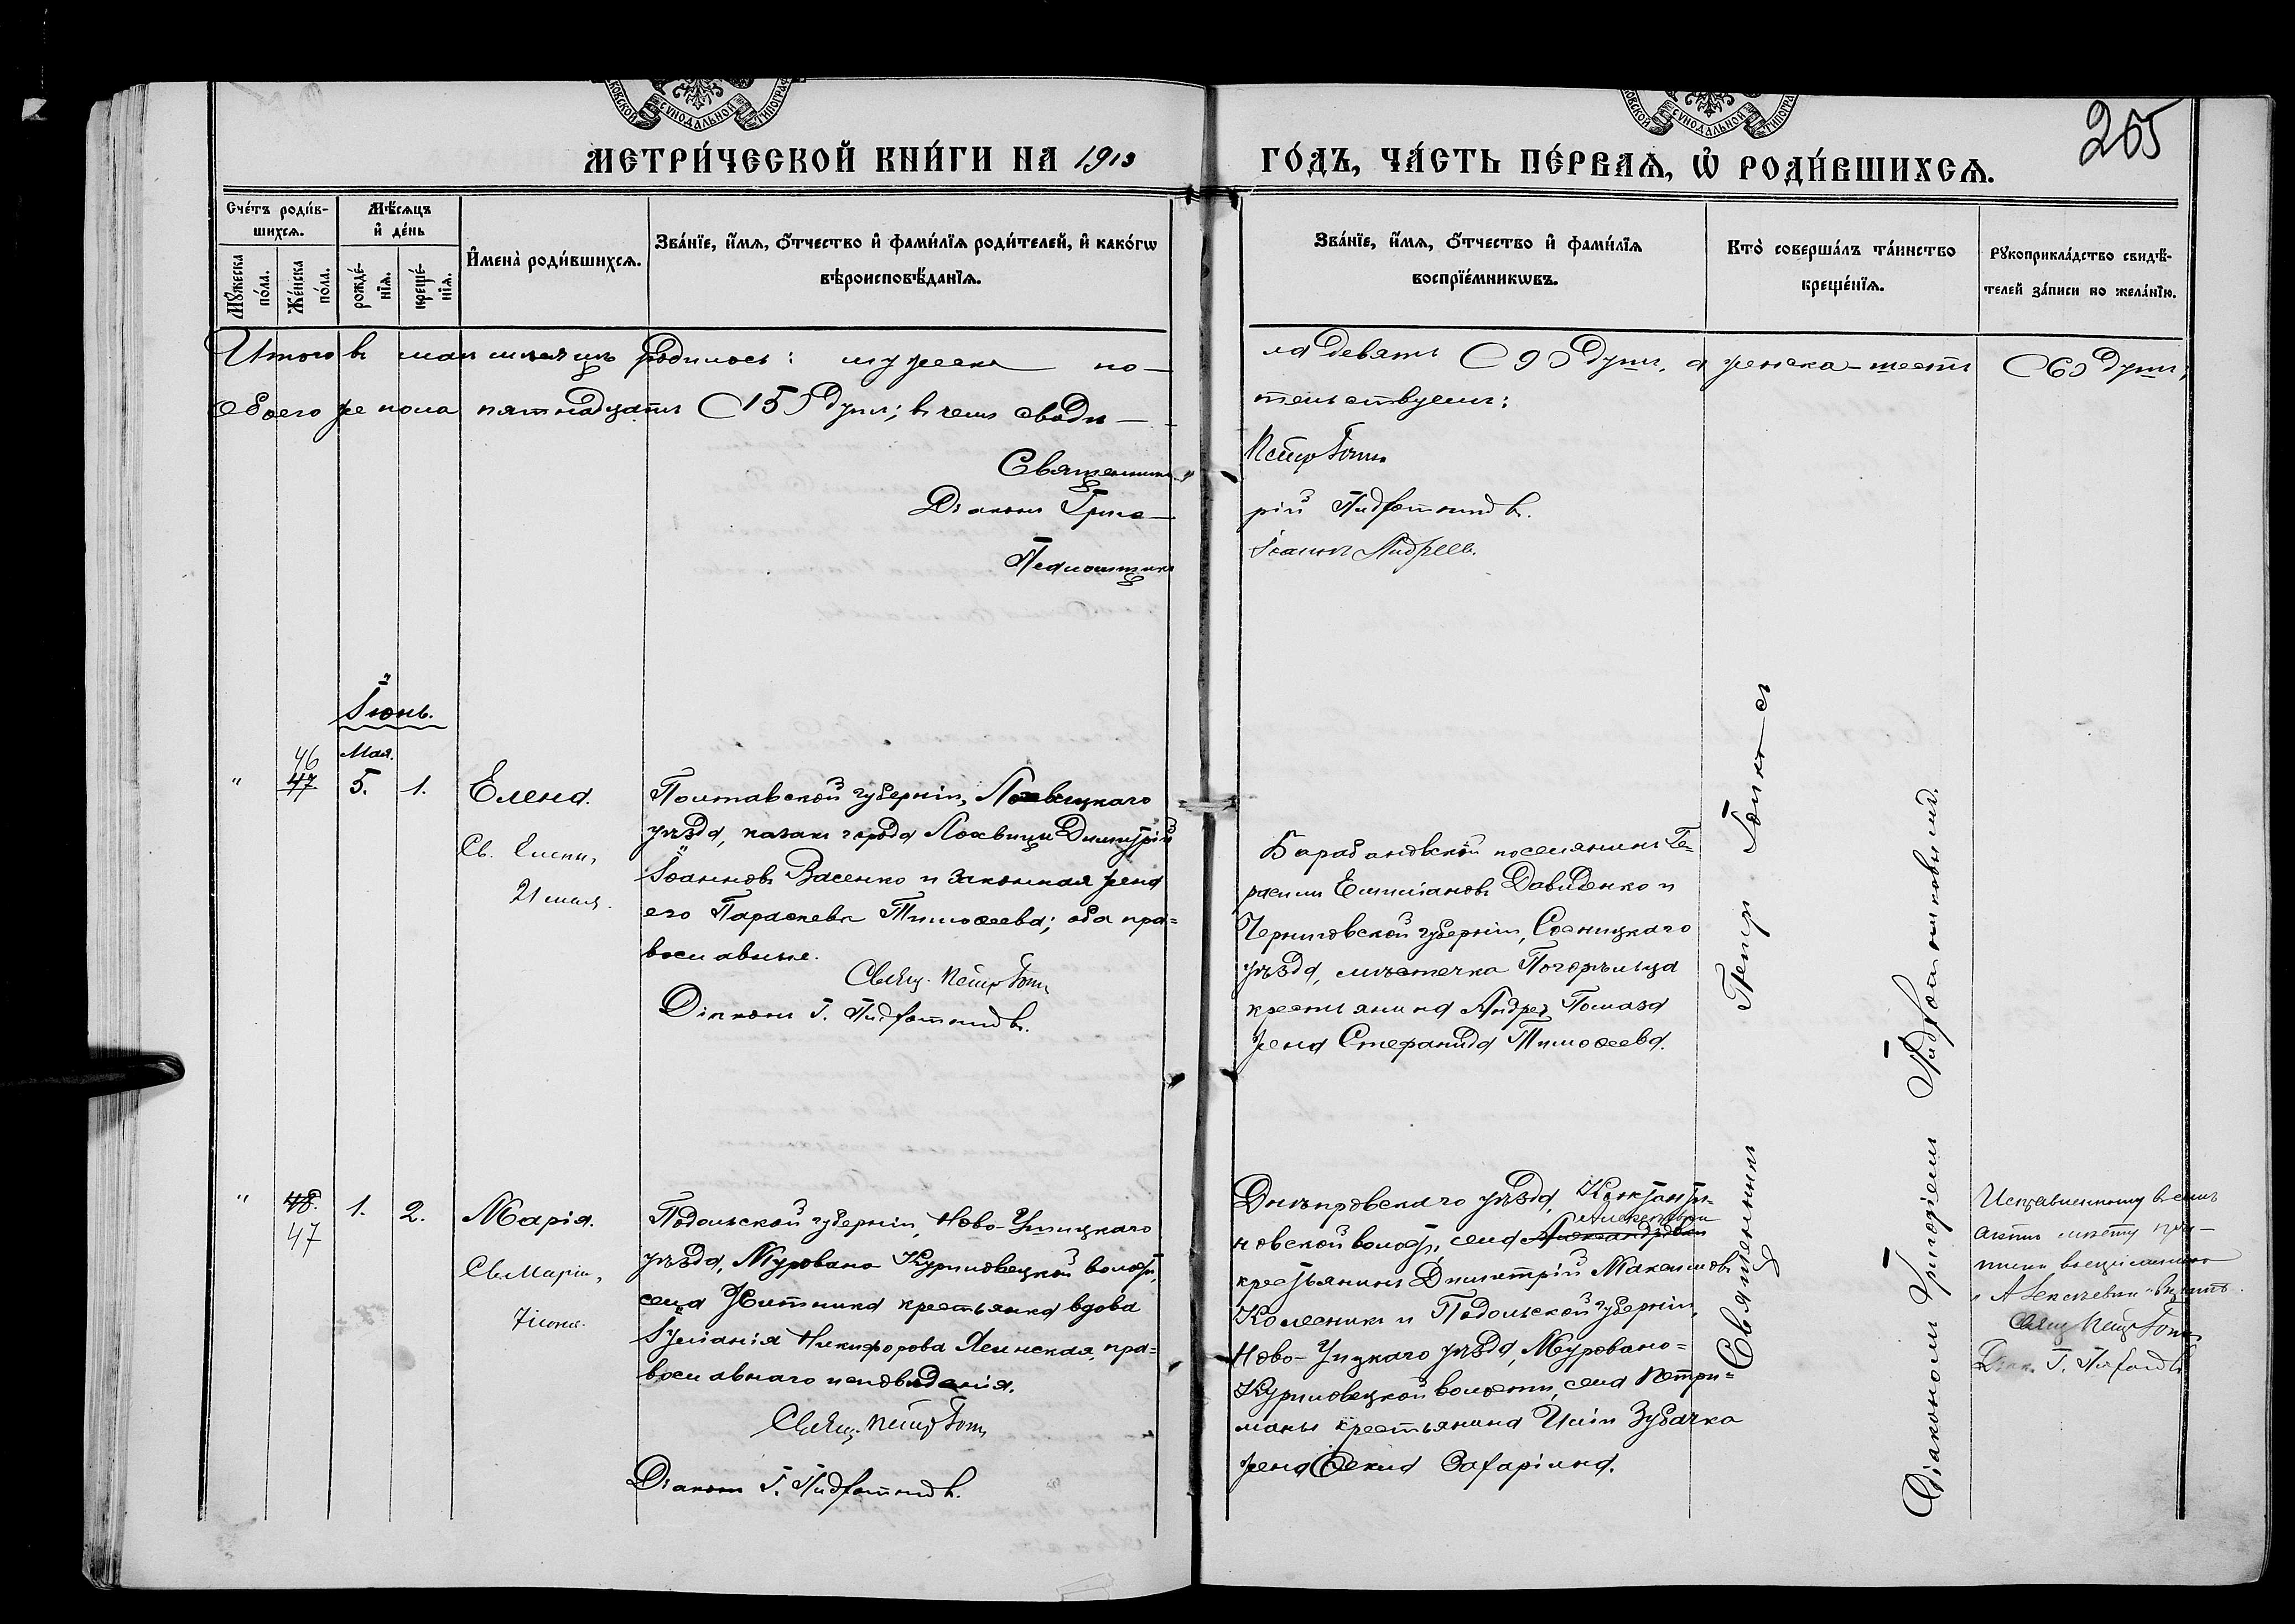 МЕТРИ́ЧЕСКОЙ КНИ́ГИ НА 1913 ГО́ДЪ, ЧА́СТЬ ПЕ́РВАѦ, Ѡ҆ РОДИ́ВШИХСѦ.
205
Сче́тъ роди́в-
шихсѧ.
Мꙋ́жеска
по́ла.
Же́нска
по́ла.
Мѣ́сѧцъ
и҆ де́нь
рожде́-
нїѧ.
креще́-
нїѧ.
И҆мена̀ роди́вшихсѧ.
Зва́нїе, и҆́мѧ, ѻ҆́тчество и҆ фами́лїѧ роди́телей, и҆ како́гѡ
вѣроисповѣ́данїѧ.
Зва́нїе, и҆́мѧ, ѻ҆́тчество и҆ фами́лїѧ
воспрїе́мникѡвъ.
Кто̀ соверша́лъ та́инство
креще́нїѧ.
Рꙋкоприкла́дство свидѣ́-
телей за́писи по жела́нїю.
Итого въ маѣ мѣсяцѣ родилось: мужеска по-
ла девять (9) душъ, а женска – шесть (6) душъ,
обоего же пола пятнадцать (15) душъ; въ чемъ свидѣ-
тельствуемъ:
Священникъ Петръ
Діаконъ Григо-
рій
Псаломщикъ
Іоаннъ Андреев.
Іюнь.
Мая.
" 46 47. 5. 1. Елена.
Св. Елены,
21 мая.
Полтавской губерніи, Лохвицкаго
уѣзда, казакъ города Лохвицы Димитрій
Іоанновъ Васенко и законная жена
его Параскева Тимоѳеева; оба пра=
вославные.
Свящ. Петръ
Діаконъ Г.
Барабановской поселянинъ Ге=
расимъ Емиліановъ Давиденко и
Черниговской губерніи, Сосницкаго
уѣзда, мѣстечка Погорѣльца
крестьянина Андрея Помаза
жена Стефанида Тимоѳеева.
Священникъ Петръ
Діакономъ Григоріемъ
" 48. 47 1. 2. Марія.
Св. Маріи,
7 іюня.
Подольской губерніи, Ново-Ушицкаго
уѣзда, Муровано Куриловецкой волости,
села Житника крестьянка вдова
Іуліанія Никифорова пра=
вославнаго исповѣданія.
Свящ. Петръ
Діаконъ Г.
Днѣпровскаго уѣзда, Константи-
новской волости, села Александровки
Алексѣевки
крестьянинъ Димитрій Максимовъ
Колесникъ и Подольской губерніи,
Ново-Ушицкаго уѣзда, Муровано=
Куриловецкой волости, села Петри=
маны крестьянина Иліи Зубачка
жена Ѳекла Захаріина.
Исправленному въ семъ
"Алексѣевки" вѣрить.
Свящ. Петръ
Діак. Г.